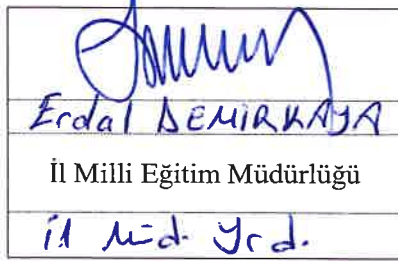 Erdal DEMİRKAYA
İl Milli Eğitim Müdürlüğü
il Müd. Yrd.